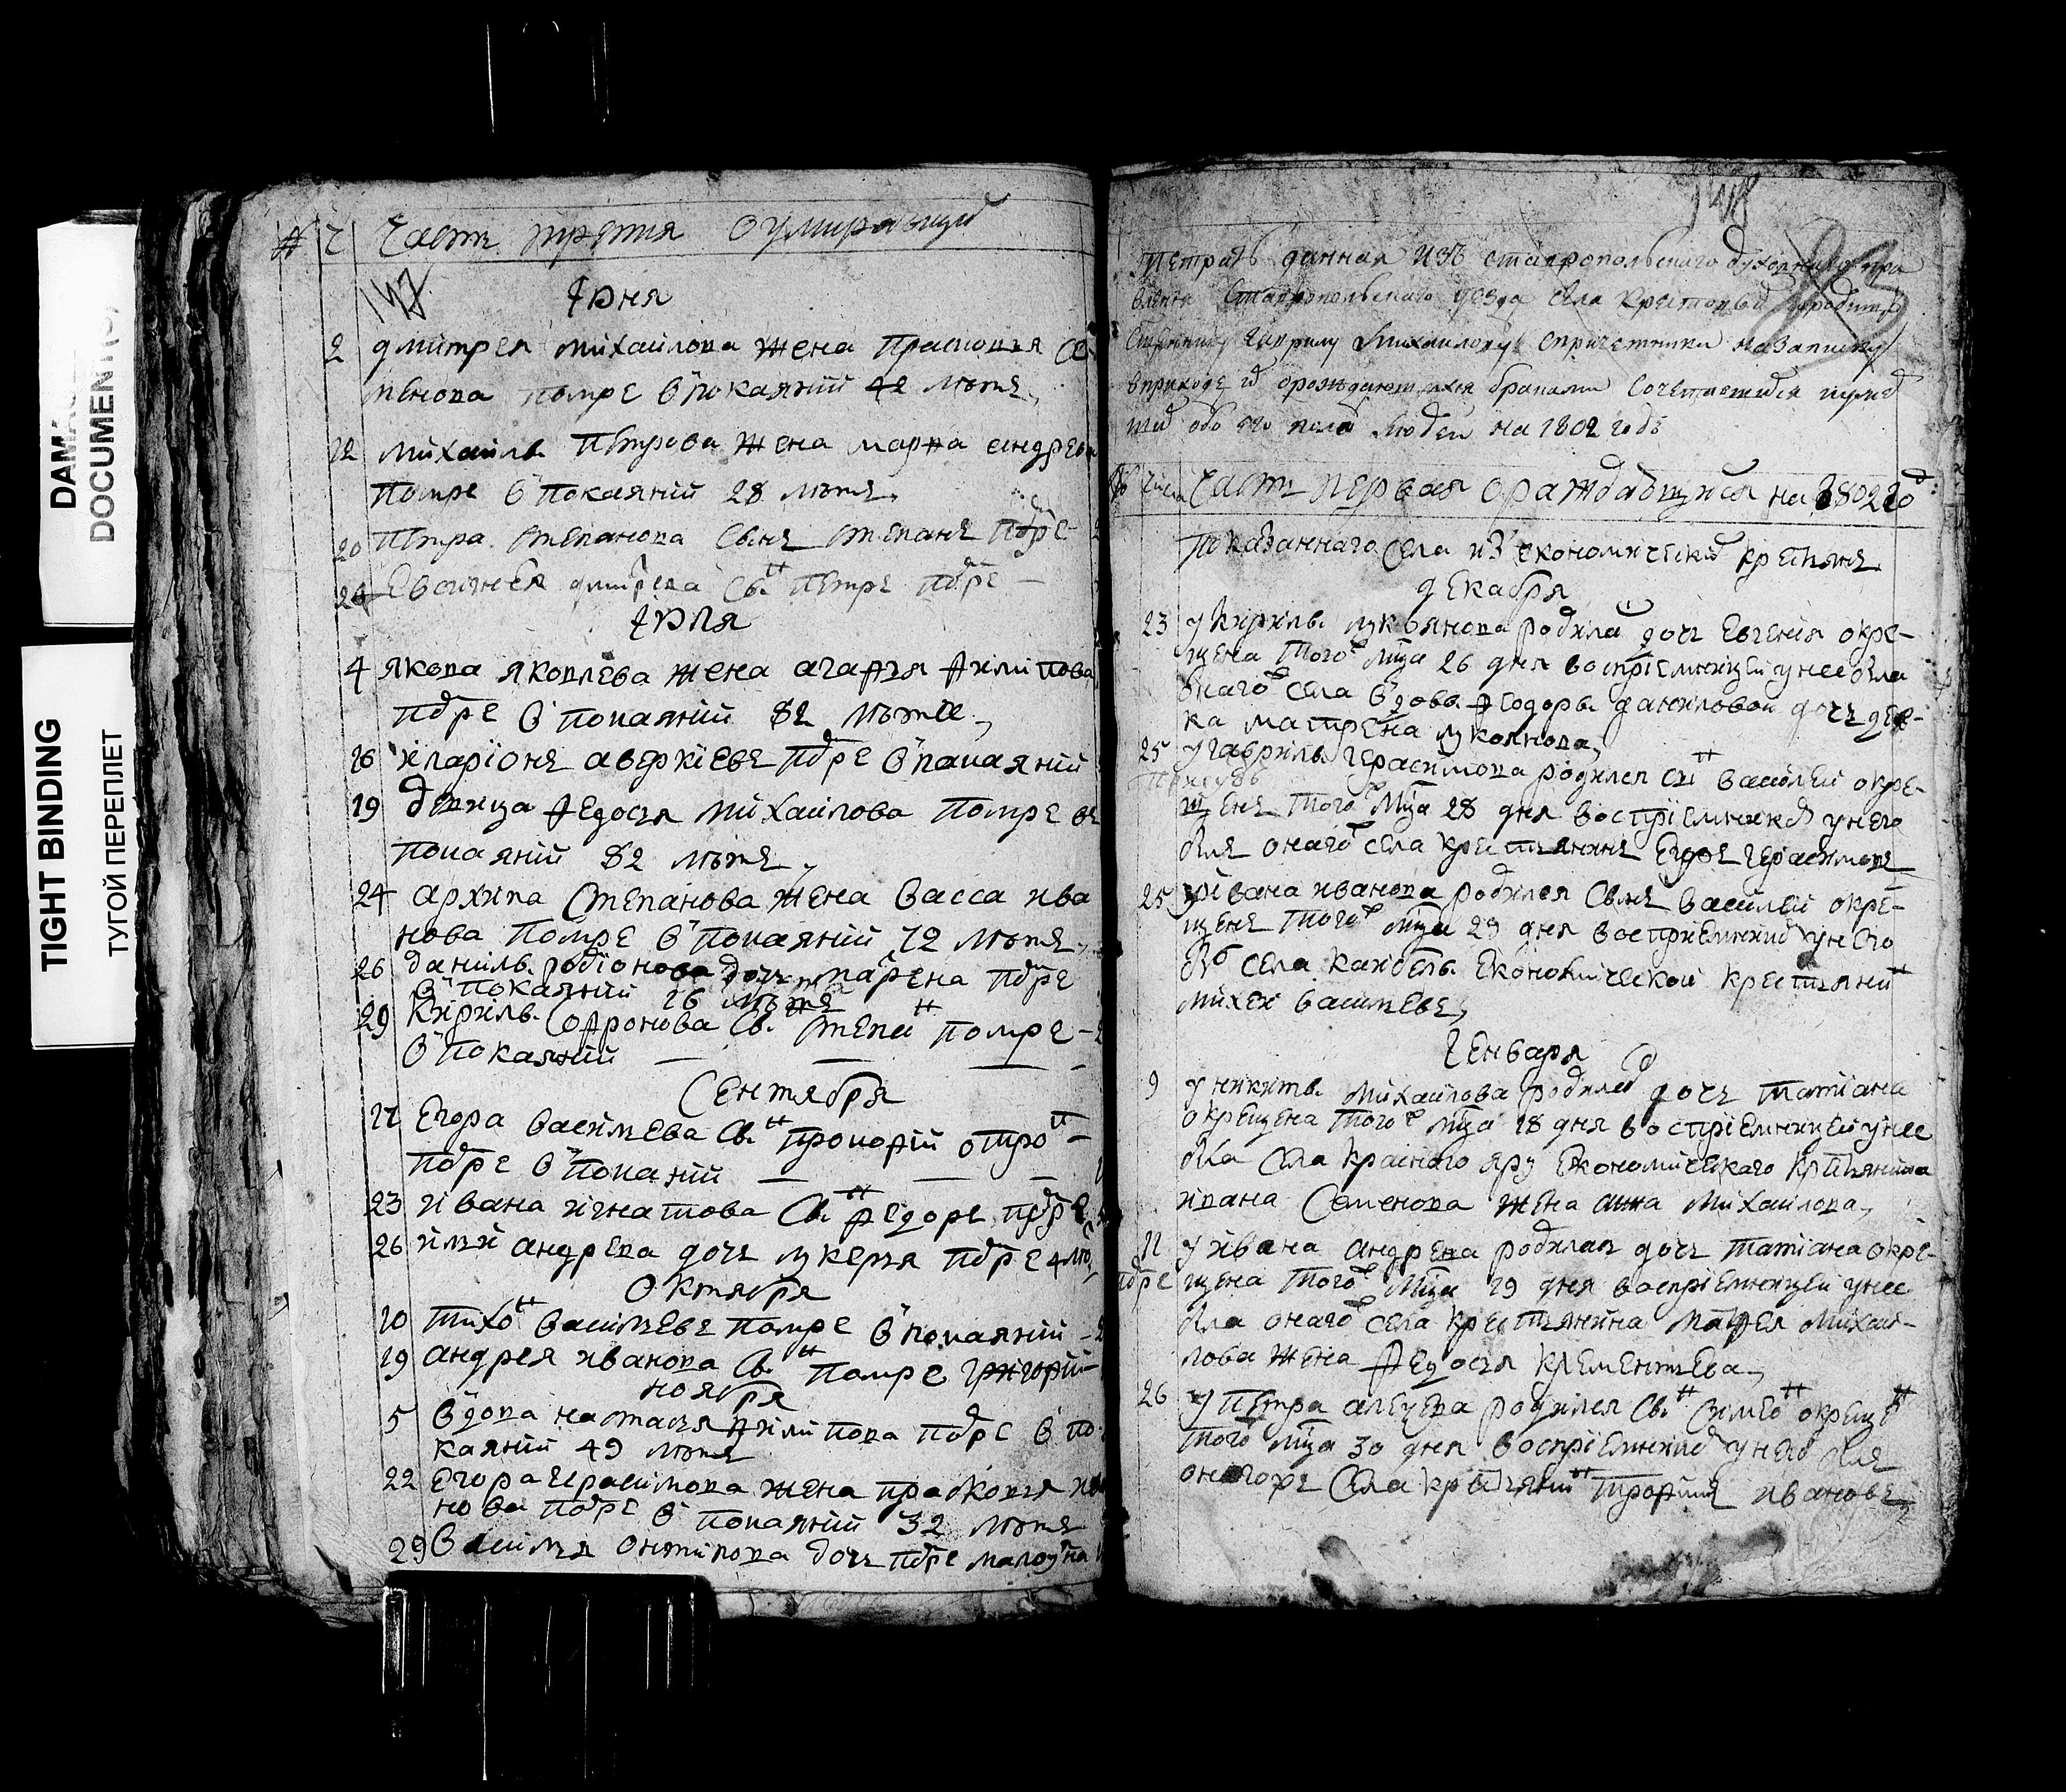 DAMAGED
DOCUMENT(S)
TIGHT BINDING
ТУГОЙ ПЕРЕПЛЕТ
№ Ч Часть третия о умирающих
147
Iюня
2 дмитрея михаилова жена Прасковья
помре в покаянии 42 летъ
12 михаила Петрова жена марфа андрев
помре в покаянии 28 летъ
20 Петра степанова сынъ степанъ помре
дмитрева сынъ Петръ помре
Iюля
4 якова яковлева жена агафья филипова
помре в покаянии 82 летъ
16 иларионъ аверкиевъ помре в покаянии
19 девица федосья михаилова помре въ
покаянии 82 летъ
24 архипа степанова жена васса ива
нова помре в покаянии 72 летъ
26 данила родионова дочь помре
в покаянии 16 летъ
29 Кирила софронова сынъ степан помре
в покаянии
Сентября
11 Егора васильева сынъ прокофий
помре в покаянии
23 ивана игнатова сынъ федоръ помре
26 ильи андрева дочь лукерья помре
Октября
10 тихон васильевъ помре в покаянии
19 андрея иванова сынъ помре григорий
ноября
5 вдова настасья филипова помре в по
каянии 49 летъ
22 Егора герасимова жена прасковья
нова помре в покаянии 32 летъ
29 василья онтипова дочь помре
148
Тетрать данная изъ ставропольскаго духовнаго пра
вления Ставропольскаго уезда села
гаврилу михаилову с причетники на записку
в приходе их о рождающихся браками сочетавшихся и умер
ших обоего пола людей на 1802 годъ
Числа Часть первая о раждающихся на 1802 год
показаннаго села из экономических крестьянъ
декабря
23 у кирила лукьянова родилась дочь Евгения окре
щена того ж мца 26 дня восприемницей у нее была
онаго ж села вдовы федоры даниловой дочь дев
ка матрена
25 у гаврила герасимова родился сын василей окре
щенъ того ж мца 28 дня восприемником у него
былъ онаго ж села крестьянинъ герасимовъ
25 у ивана иванова родился сынъ василей окре
щенъ того ж мца 29 дня восприемником у него
села экономической крестьянин
михей васильевъ
Генваря
9 у никиты михаилова родилась дочь татиана
окрещена того ж мца 18 дня восприемницей у нее
была села краснаго яру экономическаго крестьянина
ивана семенова жена анна михаилова
12 у ивана андрева родилась дочь татиана окре
помре щена того ж мца 19 дня восприемницей у нее
была онаго ж села крестьянина матфея михаи
лова жена федосья клементьева
26 у петра родился сын симеон окрещен
того ж мца 30 дня восприемником у него былъ
онагожъ села крестьянин трофимъ ивановъ